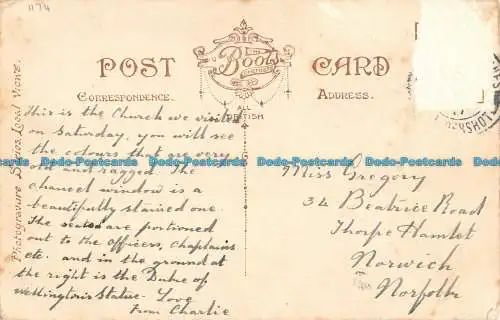 1174
POST
Boots
CARD
CORRESPONDENCE.
ALL
BRITISH
ADDRESS.
Photogravure Series, Local Views.
This is the Church we visit
on Saturday, you will see
the colours that are very
old and ragged. The
chancel window is a
beautifully stained one.
The seats are portioned
out to the officers, Chaplains
etc. and in the ground at
the right is the Duke of
Wellington's Statue. Love
from Charlie
Miss Gregory
34 Beatrice Road
Thorpe Hamlet
Norwich
Norfolk
Dads-Postcards Dads-Postcards Dads-Postcards Dads-Postcards Dads-Postcards